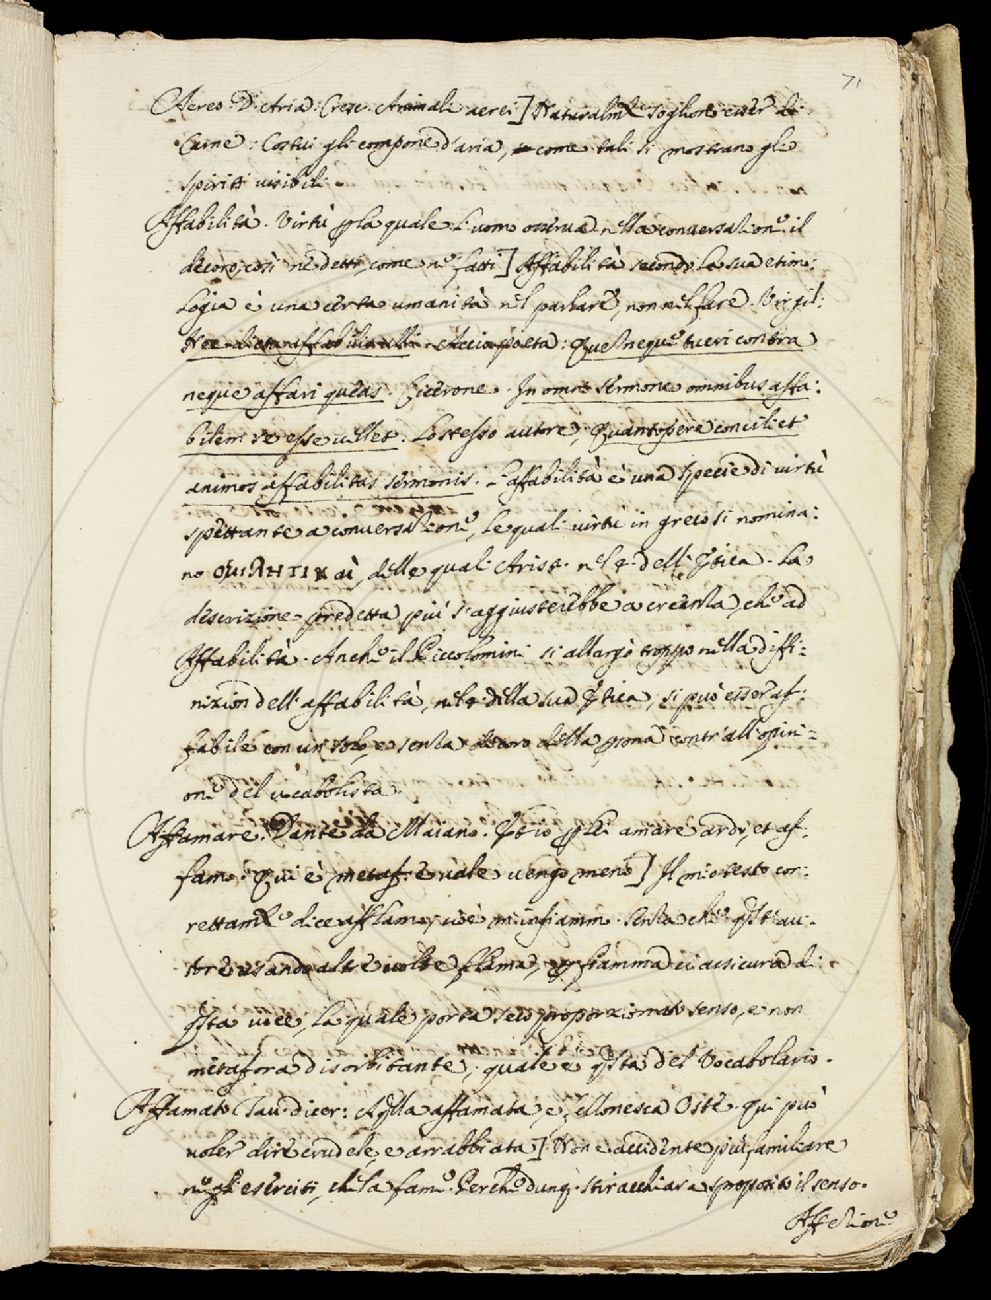 71
Aereo. D'Aria: Cresc. Animali aerei] Naturalm.e sogliono esser di
Carne: Costui gli compone d'aria, come tali si mostrano gli
spiriti visibili.
Affabilità. Virtù p la quale l'uomo osserva nella conversation.e il
decoro, così ne' detti, come ne' fatti] Affabilità secondo la sua etimo:
logia è una certa umanità nel parlare, non nel fare. Virgil:
Nec dictu affabilis ulli. Accio poeta: Quem neque tueri contra
neque affari queas. Cicerone. In omni sermone omnibus affa:
bilem se esse vellet. Lo stesso autore, Quantopere conciliet
animos affabilitas sermonis. L'affabilità è una specie di virtù
spettante a conversation.e, le quali virtù in greco si nomina:
no delle quali Arist. nel 4. dell'Etica. La
descrizione predetta più s'aggiusterebbe a creanza, che ad
Affabilità. Anche il Piccolomini si allargò troppo nella diffi-
nizion dell'affabilità, nel 4 della sua Etica, si può esser af:
fabile con un solo, e senza decoro della p'sona contr'all'opini-
on.e del vocabolista.
Affamare. Dante da Maiano. p lei amare ardo, et af-
famo. Qui è metaf. e vale vengo meno] Il mio testo cor:
rettam.e dice afflamo, cioè m'infiammo. Senza che q'st'au-
tore usando altre volte flama, p fiamma ci assicura di
q'sta voce, la quale porta seco proporzionato senso, e non
metafora disorbitante, quale è q'sta del Vocabolario.
Affamato Tav. dicer: A q'lla affamata, e fellonesca Oste. qui può
voler dire crudele, e arrabbiata] Non è accidente più familiare
negli eserciti, che la fame. Perche dunq. stiracchiar a sproposito il senso.
Affezion.e